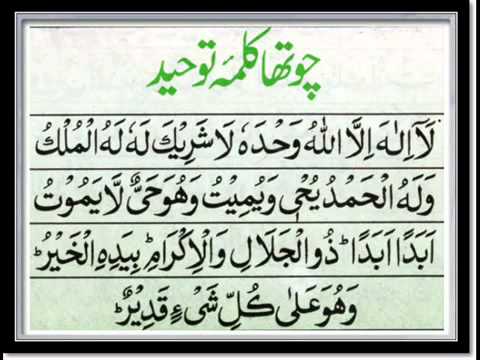 چوتھا کلمۂ توحید
لَآ اِلٰهَ اِلَّا اللّٰهُ وَحْدَهٗ لَا شَرِيْكَ لَهٗ لَهُ الْمُلْكُ
وَلَهُ الْحَمْدُ يُحْيٖ وَيُمِيْتُ وَهُوَ حَیٌّ لَّا يَمُوْتُ
اَبَدًا اَبَدًاؕ ذُو الْجَلَالِ وَالْاِكْرَامِؕ بِيَدِهِ الْخَيْرُؕ
وَهُوَ عَلٰى كُلِّ شَیْءٍ قَدِيْرٌؕ